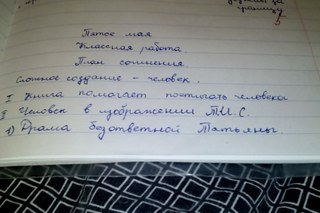 за
Пятое мая
Классная работа.
План сочинения.
Сложное создание - человек.
I Книга помогает постигать человека
II Человек в изображении Т.И.С.
1) Драма безответной Татьяны.